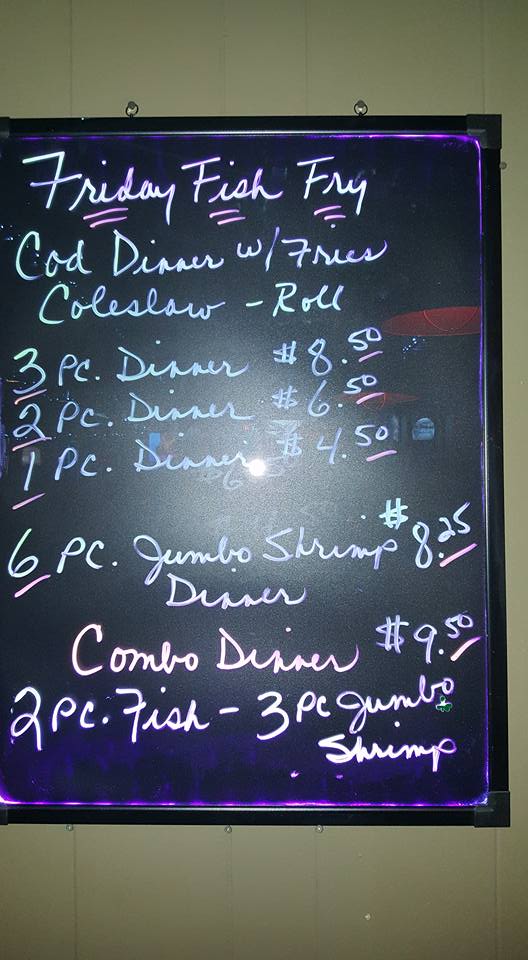 Friday Fish Fry
Cod Dinner w/Fries
Coleslaw - Roll
3 Pc. Dinner $8.50
2 Pc. Dinner $6.50
1 Pc. Dinner $4.50
6 Pc. Jumbo Shrimp $8.25
Dinner
Combo Dinner $9.50
2 Pc. Fish - 3 Pc Jumbo
Shrimp